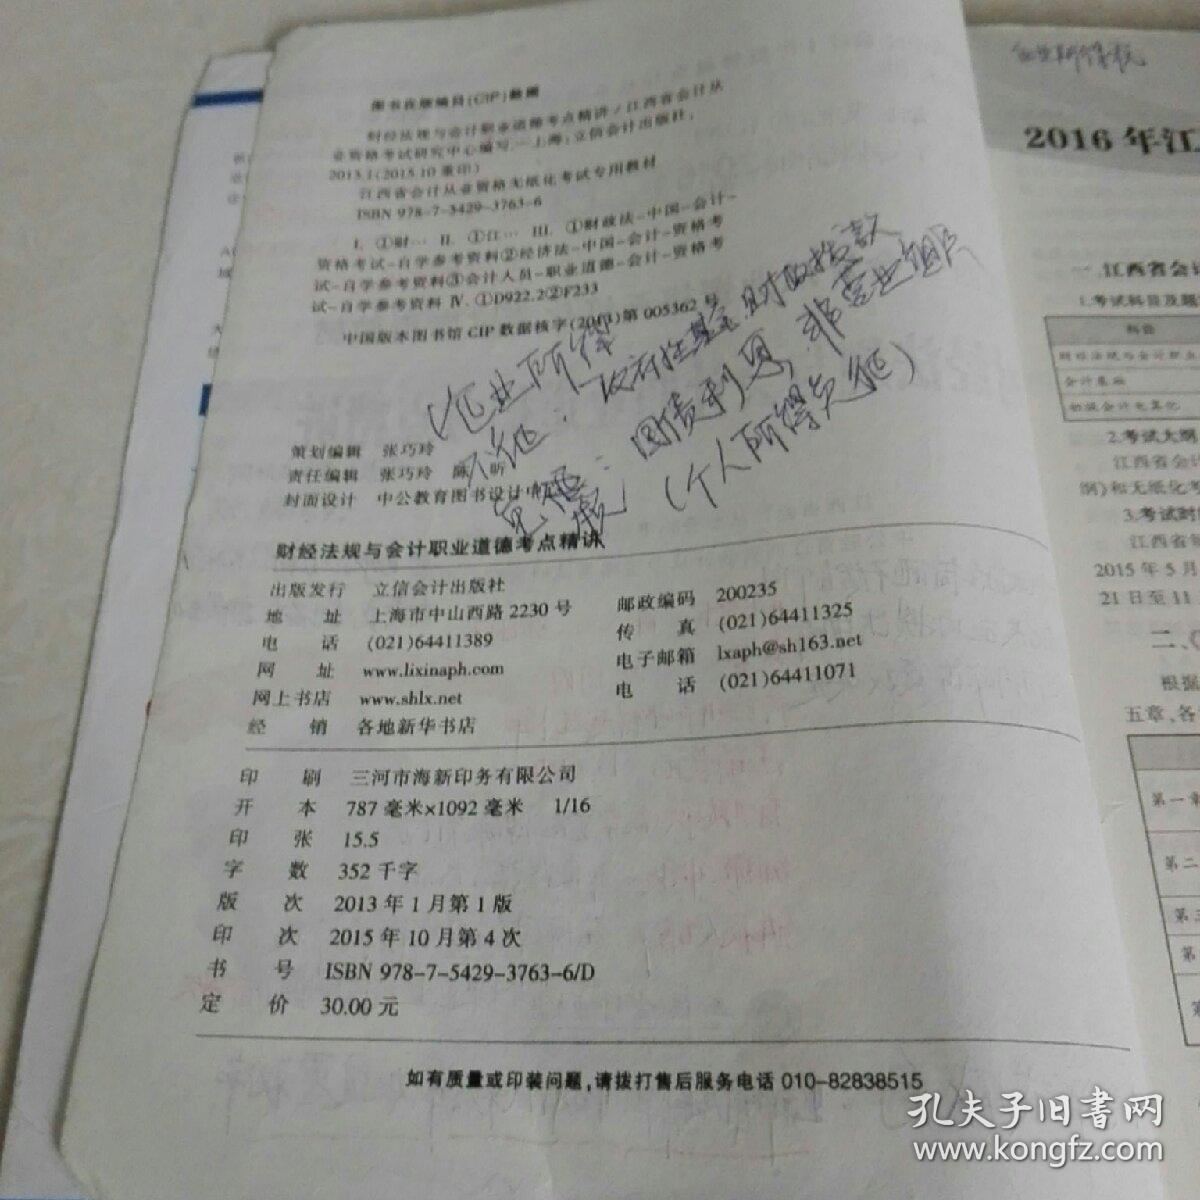 图书在版编目(CIP)数据
财经法规与会计职业道德考点精讲/江西省会计从
业资格考试研究中心编写.—上海:立信会计出版社,
2013.1(2015.10重印)
江西省会计从业资格无纸化考试专用教材
ISBN 978-7-5429-3763-6
Ⅰ. ①财… Ⅱ. ①江… Ⅲ. ①财政法-中国-会计-
资格考试-自学参考资料②经济法-中国-会计-资格考
试-自学参考资料③会计人员-职业道德-会计-资格考
试-自学参考资料 Ⅳ. ①D922.2②F233
中国版本图书馆CIP数据核字(2013)第005362号
(企业所得
不征:政府性基金 财政拨款
免征:国债利息,非营业组织
(个人所得免征)
策划编辑 张巧玲
责任编辑 张巧玲 陈昕
封面设计 中公教育图书设计中
财经法规与会计职业道德考点精讲
出版发行 立信会计出版社
地 址 上海市中山西路2230号 邮政编码 200235
电 话 (021)64411389 传 真 (021)64411325
网 址 www.lixinaph.com 电子邮箱 lxaph@sh163.net
网上书店 www.shlx.net 电 话 (021)64411071
经 销 各地新华书店
印 刷 三河市海新印务有限公司
开 本 787毫米×1092毫米 1/16
印 张 15.5
字 数 352千字
版 次 2013年1月第1版
印 次 2015年10月第4次
书 号 ISBN 978-7-5429-3763-6/D
定 价 30.00元
如有质量或印装问题,请拨打售后服务电话 010-82838515
企业所得税
2016年江
一、江西省会计
1.考试科目及题
科目
财经法规与会计职业
会计基础
初级会计电算化
2.考试大纲
江西省会计
纲)和无纸化考
3.考试时
江西省每
2015年5月
21日至11
二、
根据
五章,各
第一章
第二
第三
第
孔夫子旧书网
www.kongfz.com